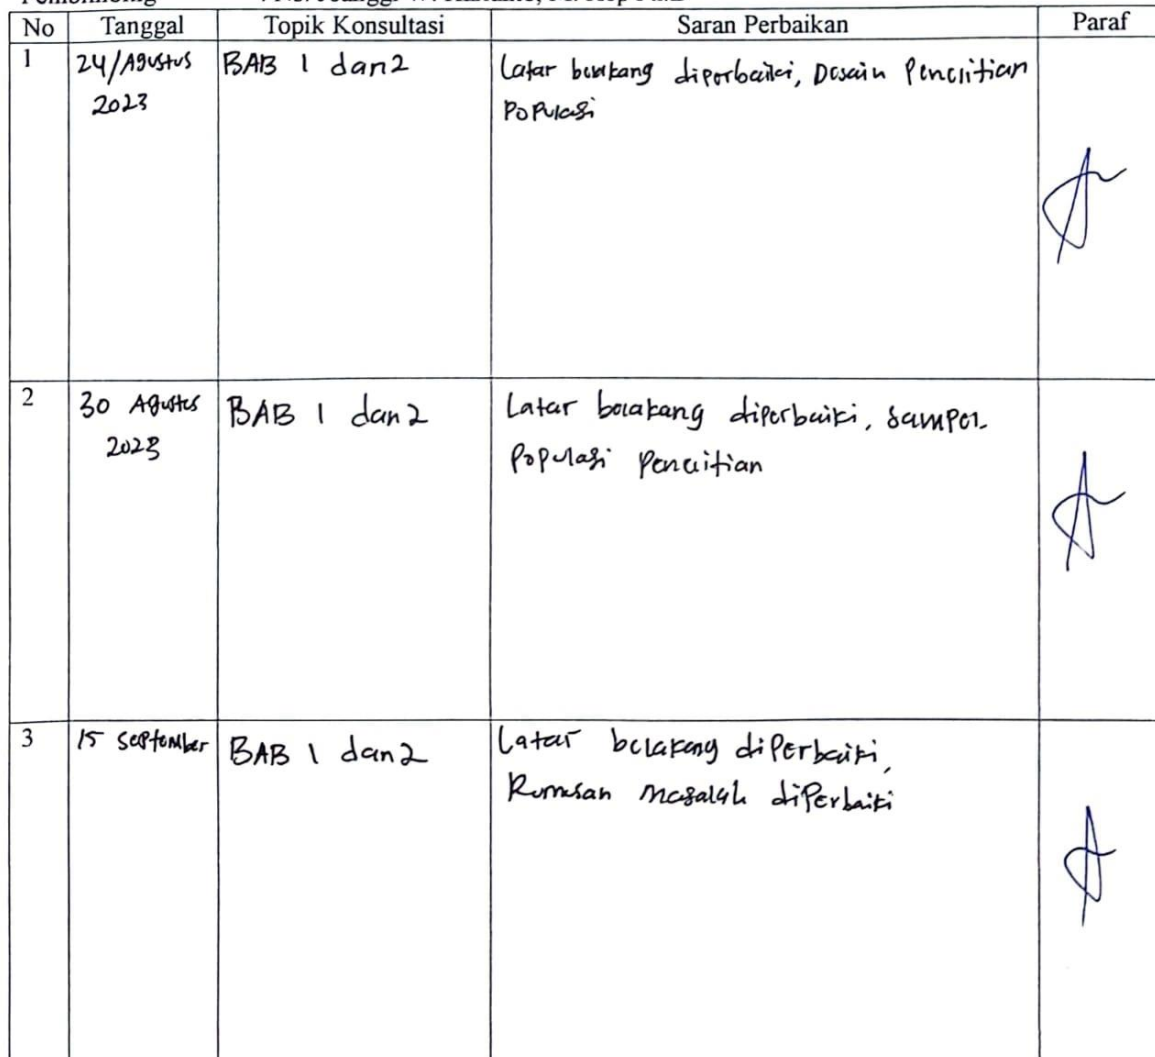 No Tanggal Topik Konsultasi Saran Perbaikan Paraf
1 24/Agustus BAB 1 dan 2 Latar belakang diperbaiki, Desain Penelitian
2023 Populasi
2 30 Agustus BAB 1 dan 2 Latar belakang diperbaiki, sampel
2023 Populasi Penelitian
3 15 September BAB 1 dan 2 Latar belakang diperbaiki,
Rumusan masalah diperbaiki